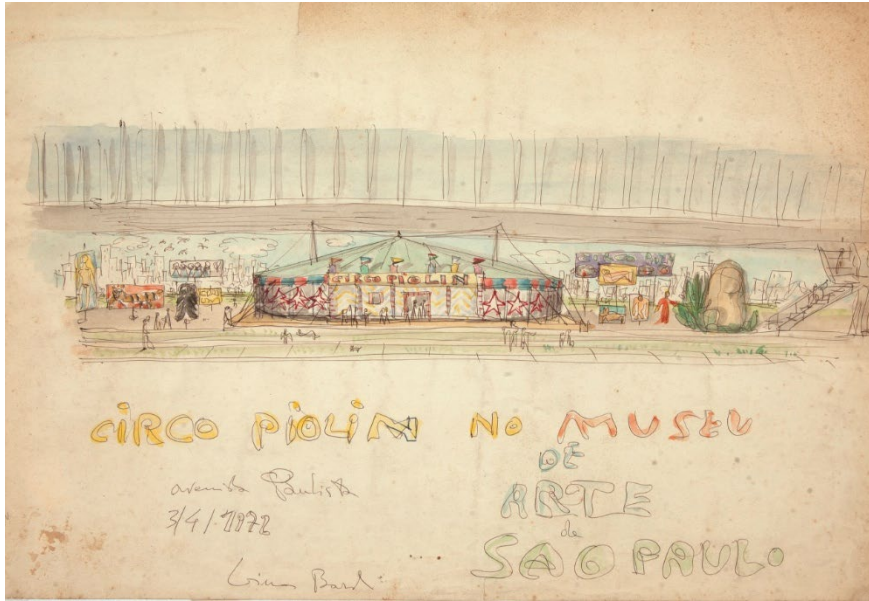 CIRCO PIOLIN
CIRCO PIOLIN NO MUSEU
DE
ARTE
de
SÃO PAULO
avenida Paulista
3/4/1972
Lina Bardi